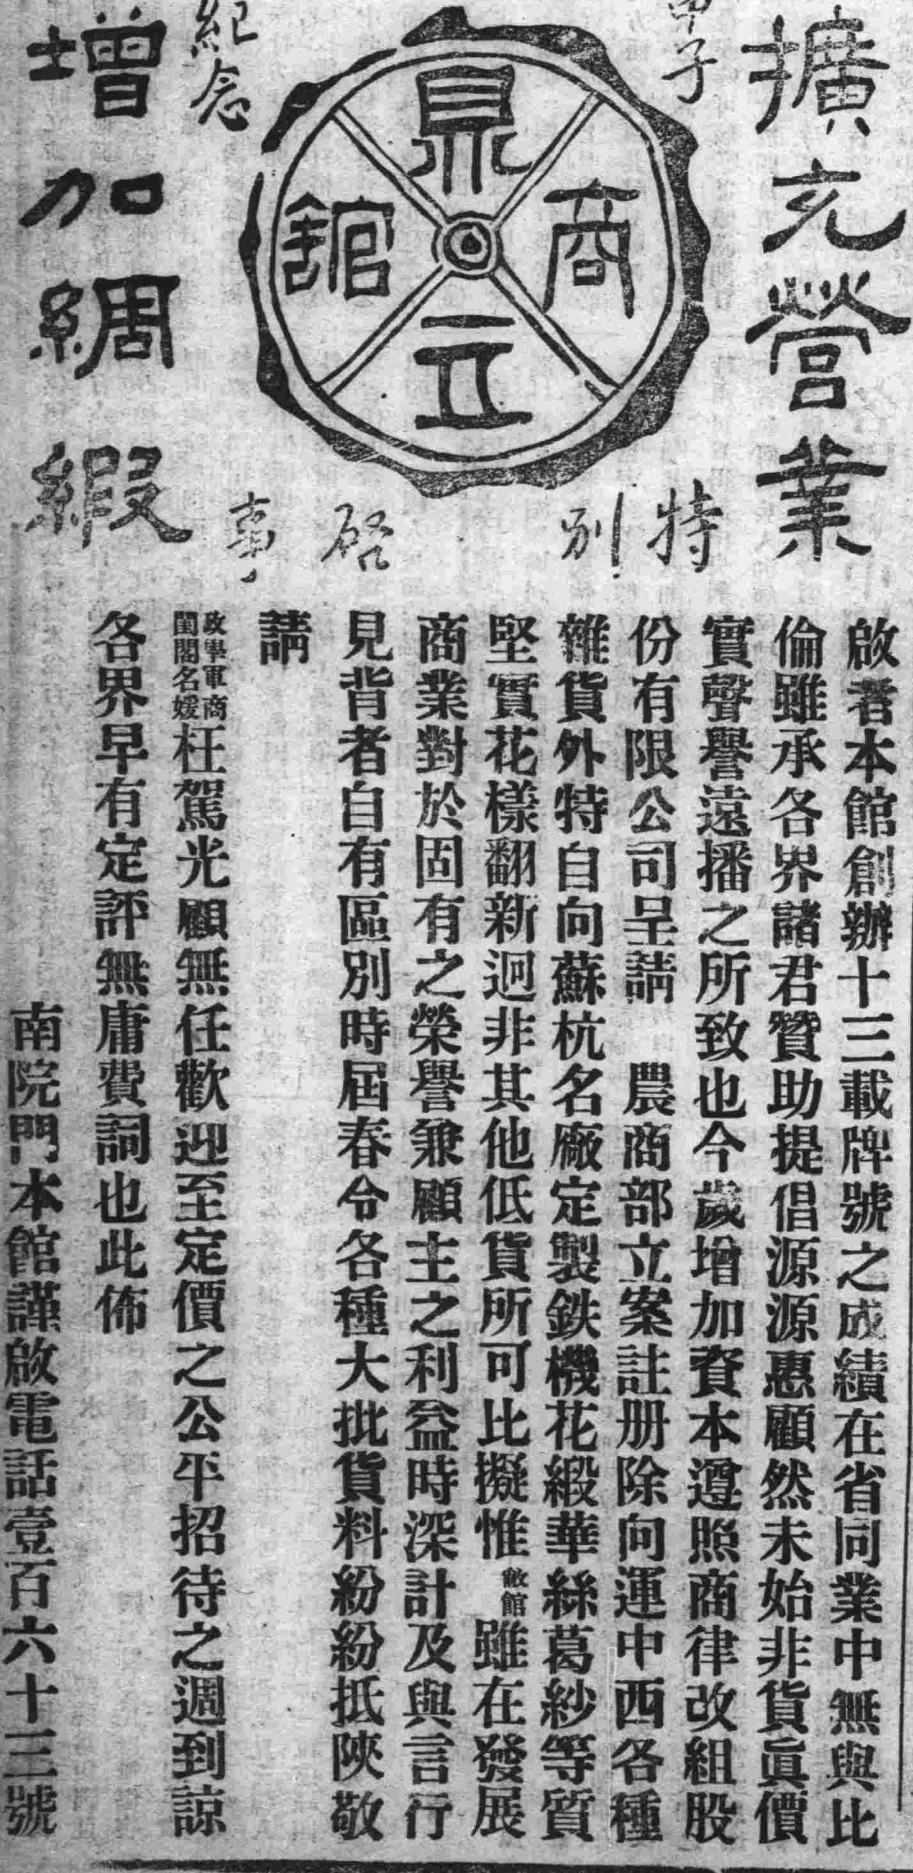 擴充營業
甲子
鼎立商館
紀念
增加綢緞
特別啓事
啟者本館創辦十三載牌號之成績在省同業中無與比
倫雖承各界諸君贊助提倡源源惠顧然未始非貨眞價
實聲譽遠播之所致也今歲增加資本遵照商律改組股
份有限公司呈請　農商部立案註册除向運中西各種
雜貨外特自向蘇杭名廠定製鉄機花緞華絲葛紗等質
堅實花樣翻新迥非其他低貨所可比擬惟敝館雖在發展
商業對於固有之榮譽兼顧主之利益時深計及與言行
見背者自有區別時屆春令各種大批貨料紛紛抵陝敬
請
政學軍商
閨閣名媛枉駕光顧無任歡迎至定價之公平招待之週到諒
各界早有定評無庸費詞也此佈
南院門本館謹啟電話壹百六十三號